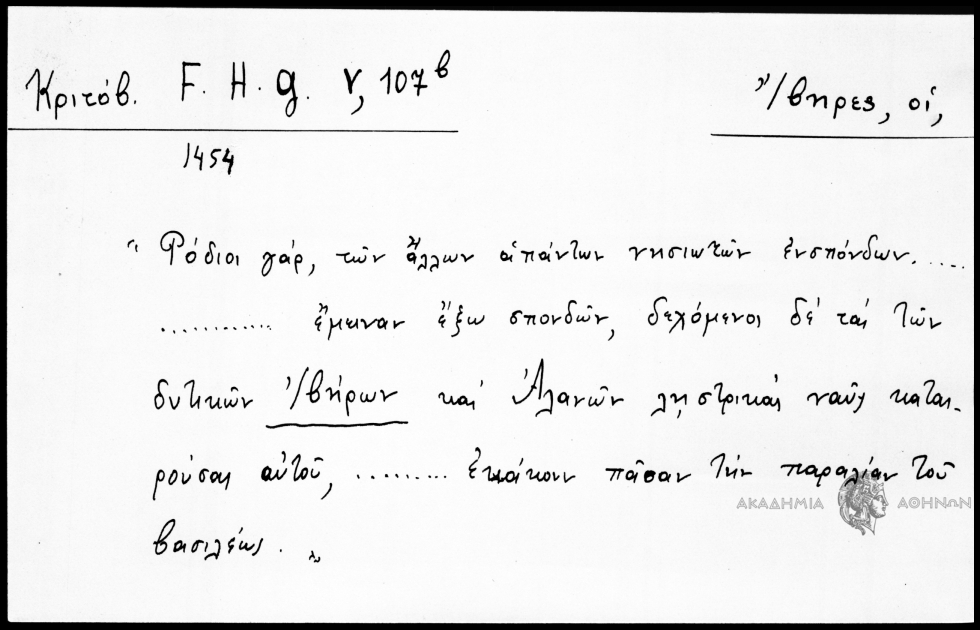 Κριτόβ. F. H. g. V, 107β
Ἴβηρες, οἱ,
1454
“ Ῥόδιοι γάρ, τῶν ἄλλων ἁπάντων νησιωτῶν ἐνσπόνδων.....
............ ἔμειναν ἔξω σπονδῶν, δεχόμενοι δέ τὰς τῶν
δυτικῶν Ἰβήρων καί Ἀλανῶν λῃστρικάς ναῦς καται-
ρούσας αὐτοῦ, ......... ἐκάκουν πᾶσαν τήν παραλίαν τοῦ
βασιλέως. „
ΑΚΑΔΗΜΙΑ ΑΘΗΝΩΝ